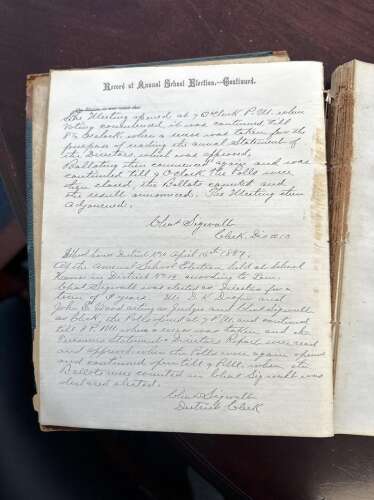 Record of Annual School Election.—Continued.
The Meeting opened at 7 O'clock P.M. when
Voting commenced, it was continued till
8½ O'clock when a recess was taken for the
purpose of reading the annual Statement of
the Directors which was approved,
Balloting then commenced again and was
continued till 9 O'clock the Polls were
then closed, the Ballots counted and
the result announced. The Meeting then
Adjourned.
Chas Sigwalt
Clerk, Dis No 10
School District No 10 April 16th 1887.
At the annual School Election held at School
House in District No 10 according to Law
Chas Sigwalt was elected as Director for a
term of 3 years. D. K. Draper and
John S. Wood acting as Judges and Chas Sigwalt
as Clerk, the Polls opened at 7 P.M. and continued
till 8 P.M. when a recess was taken and the
Treasurers Statement & Directors Report were read
and approved when the Polls were again opened
and continued open till 9 P.M. when the
Ballots were counted and Chas Sigwalt was
declared elected.
Chas Sigwalt
District Clerk